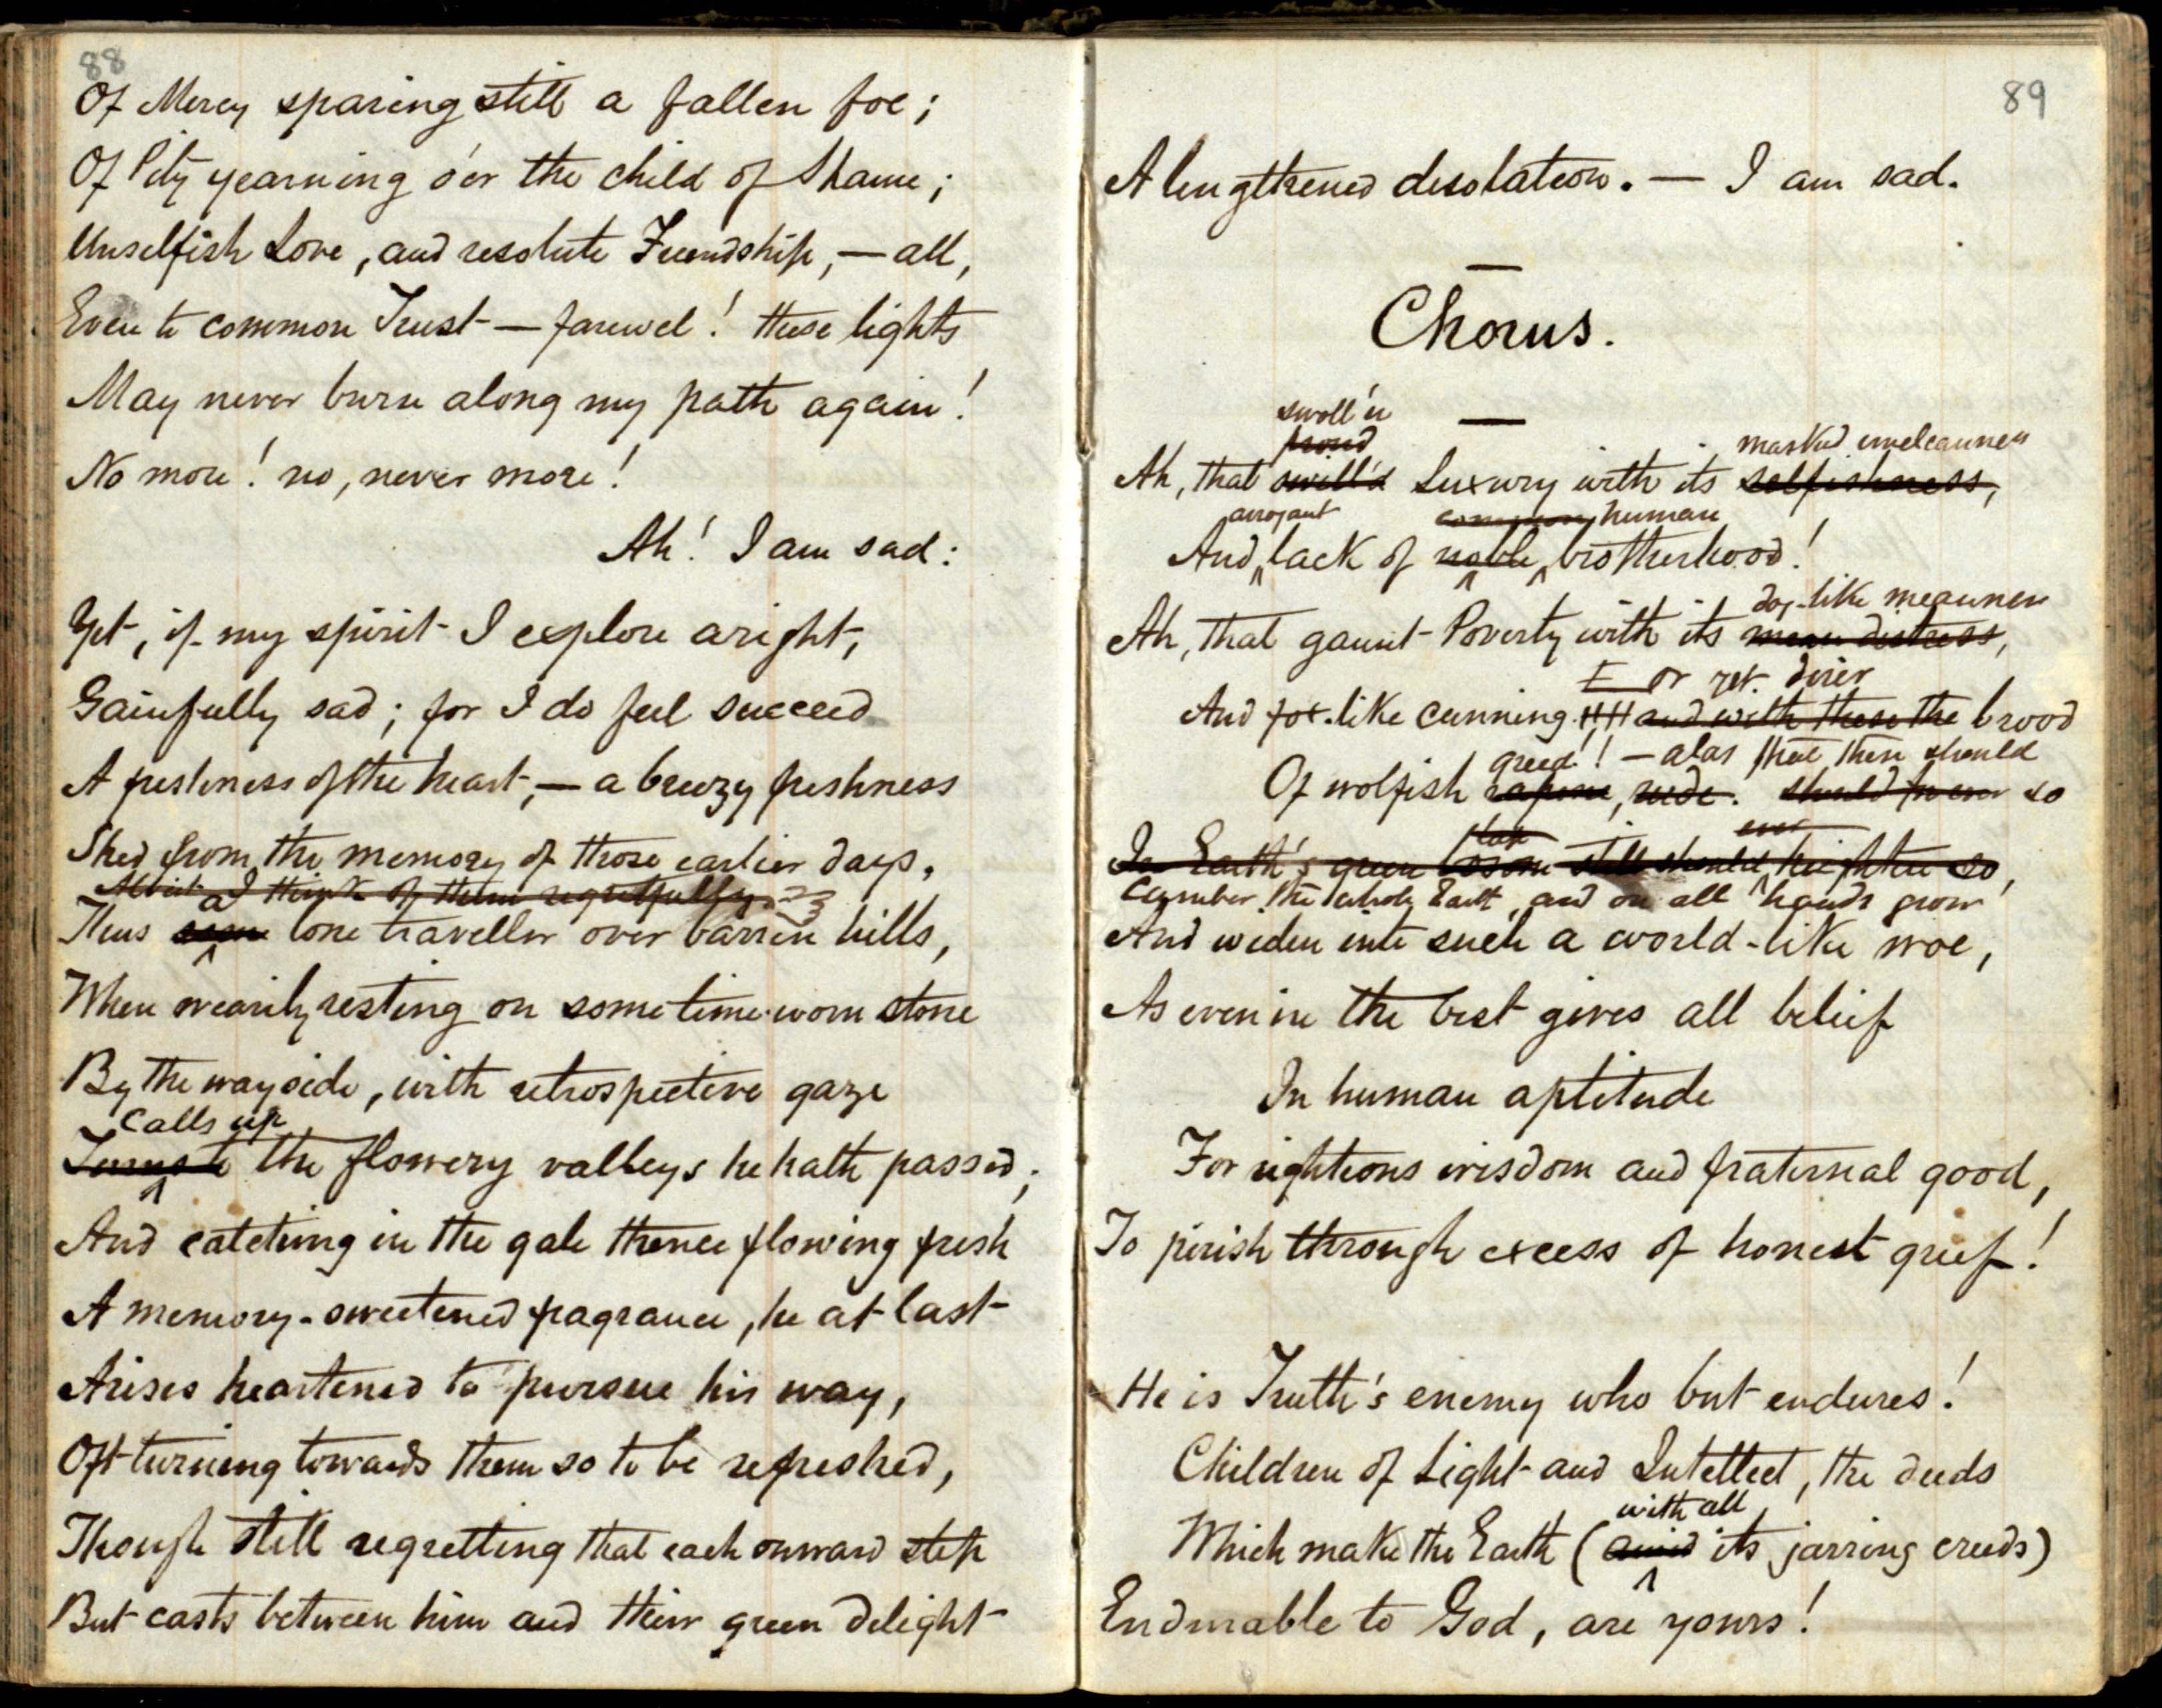 88
Of Mercy sparing still a fallen foe;
Of Pity yearning o'er the child of Shame;
Unselfish Love, and resolute Friendship, — all,
Even to common Trust — farewel! these lights
May never burn along my path again!
No more! no, never more!
Ah! I am sad:
Yet, if my spirit I explore aright,
Gainfully sad; for I do feel succeed
A freshness of the heart, — a breezy freshness
Shed from the memory of those earlier days,
Albeit I think of them regretfully.
a
Thus some lone traveller over barren hills,
When wearily resting on some time-worn stone
By the wayside, with retrospective gaze
Calls up
Turns to the flowery valleys he hath passed;
And catching in the gale thence flowing fresh
A memory-sweetened fragrance, he at last
Arises heartened to pursue his way,
Oft turning towards them so to be refreshed,
Though still regretting that each onward step
But casts between him and their green delight
89
A lengthened desolation. — I am sad.
Chorus.
swoll'n
proud
masked uncleanness
Ah, that swill'd Luxury with its selfishness,
arrogant common human
And lack of noble brotherhood!
dog-like meanness
Ah, that gaunt Poverty with its mean distress,
— or yet direr
And fox-like cunning and with these the brood
greed! — alas that these should
Of wolfish rapine, rude. should ever so
ever
In Earth's green bosom still should heighten so,
Cumber the whole Earth, and on all hands grow
And widen into such a world-like woe,
As even in the best gives all belief
In human aptitude
For righteous wisdom and fraternal good,
To perish through excess of honest grief!
He is Truth's enemy who but endures!
Children of Light and Intellect, the deeds
with all
Which make the Earth (amid its jarring creeds)
Endurable to God, are yours!